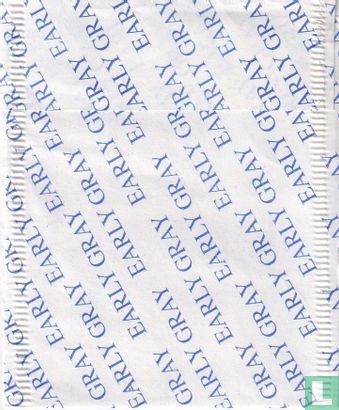 EARLY GRAY
EARLY GRAY EARLY
EARLY GRAY EARLY GRAY
EARLY GRAY EARLY GRAY EARLY
EARLY GRAY EARLY GRAY EARLY GRAY
EARLY GRAY EARLY GRAY EARLY GRAY EARLY
EARLY GRAY EARLY GRAY EARLY GRAY
EARLY GRAY EARLY GRAY EARLY
EARLY GRAY EARLY GRAY
GRAY EARLY